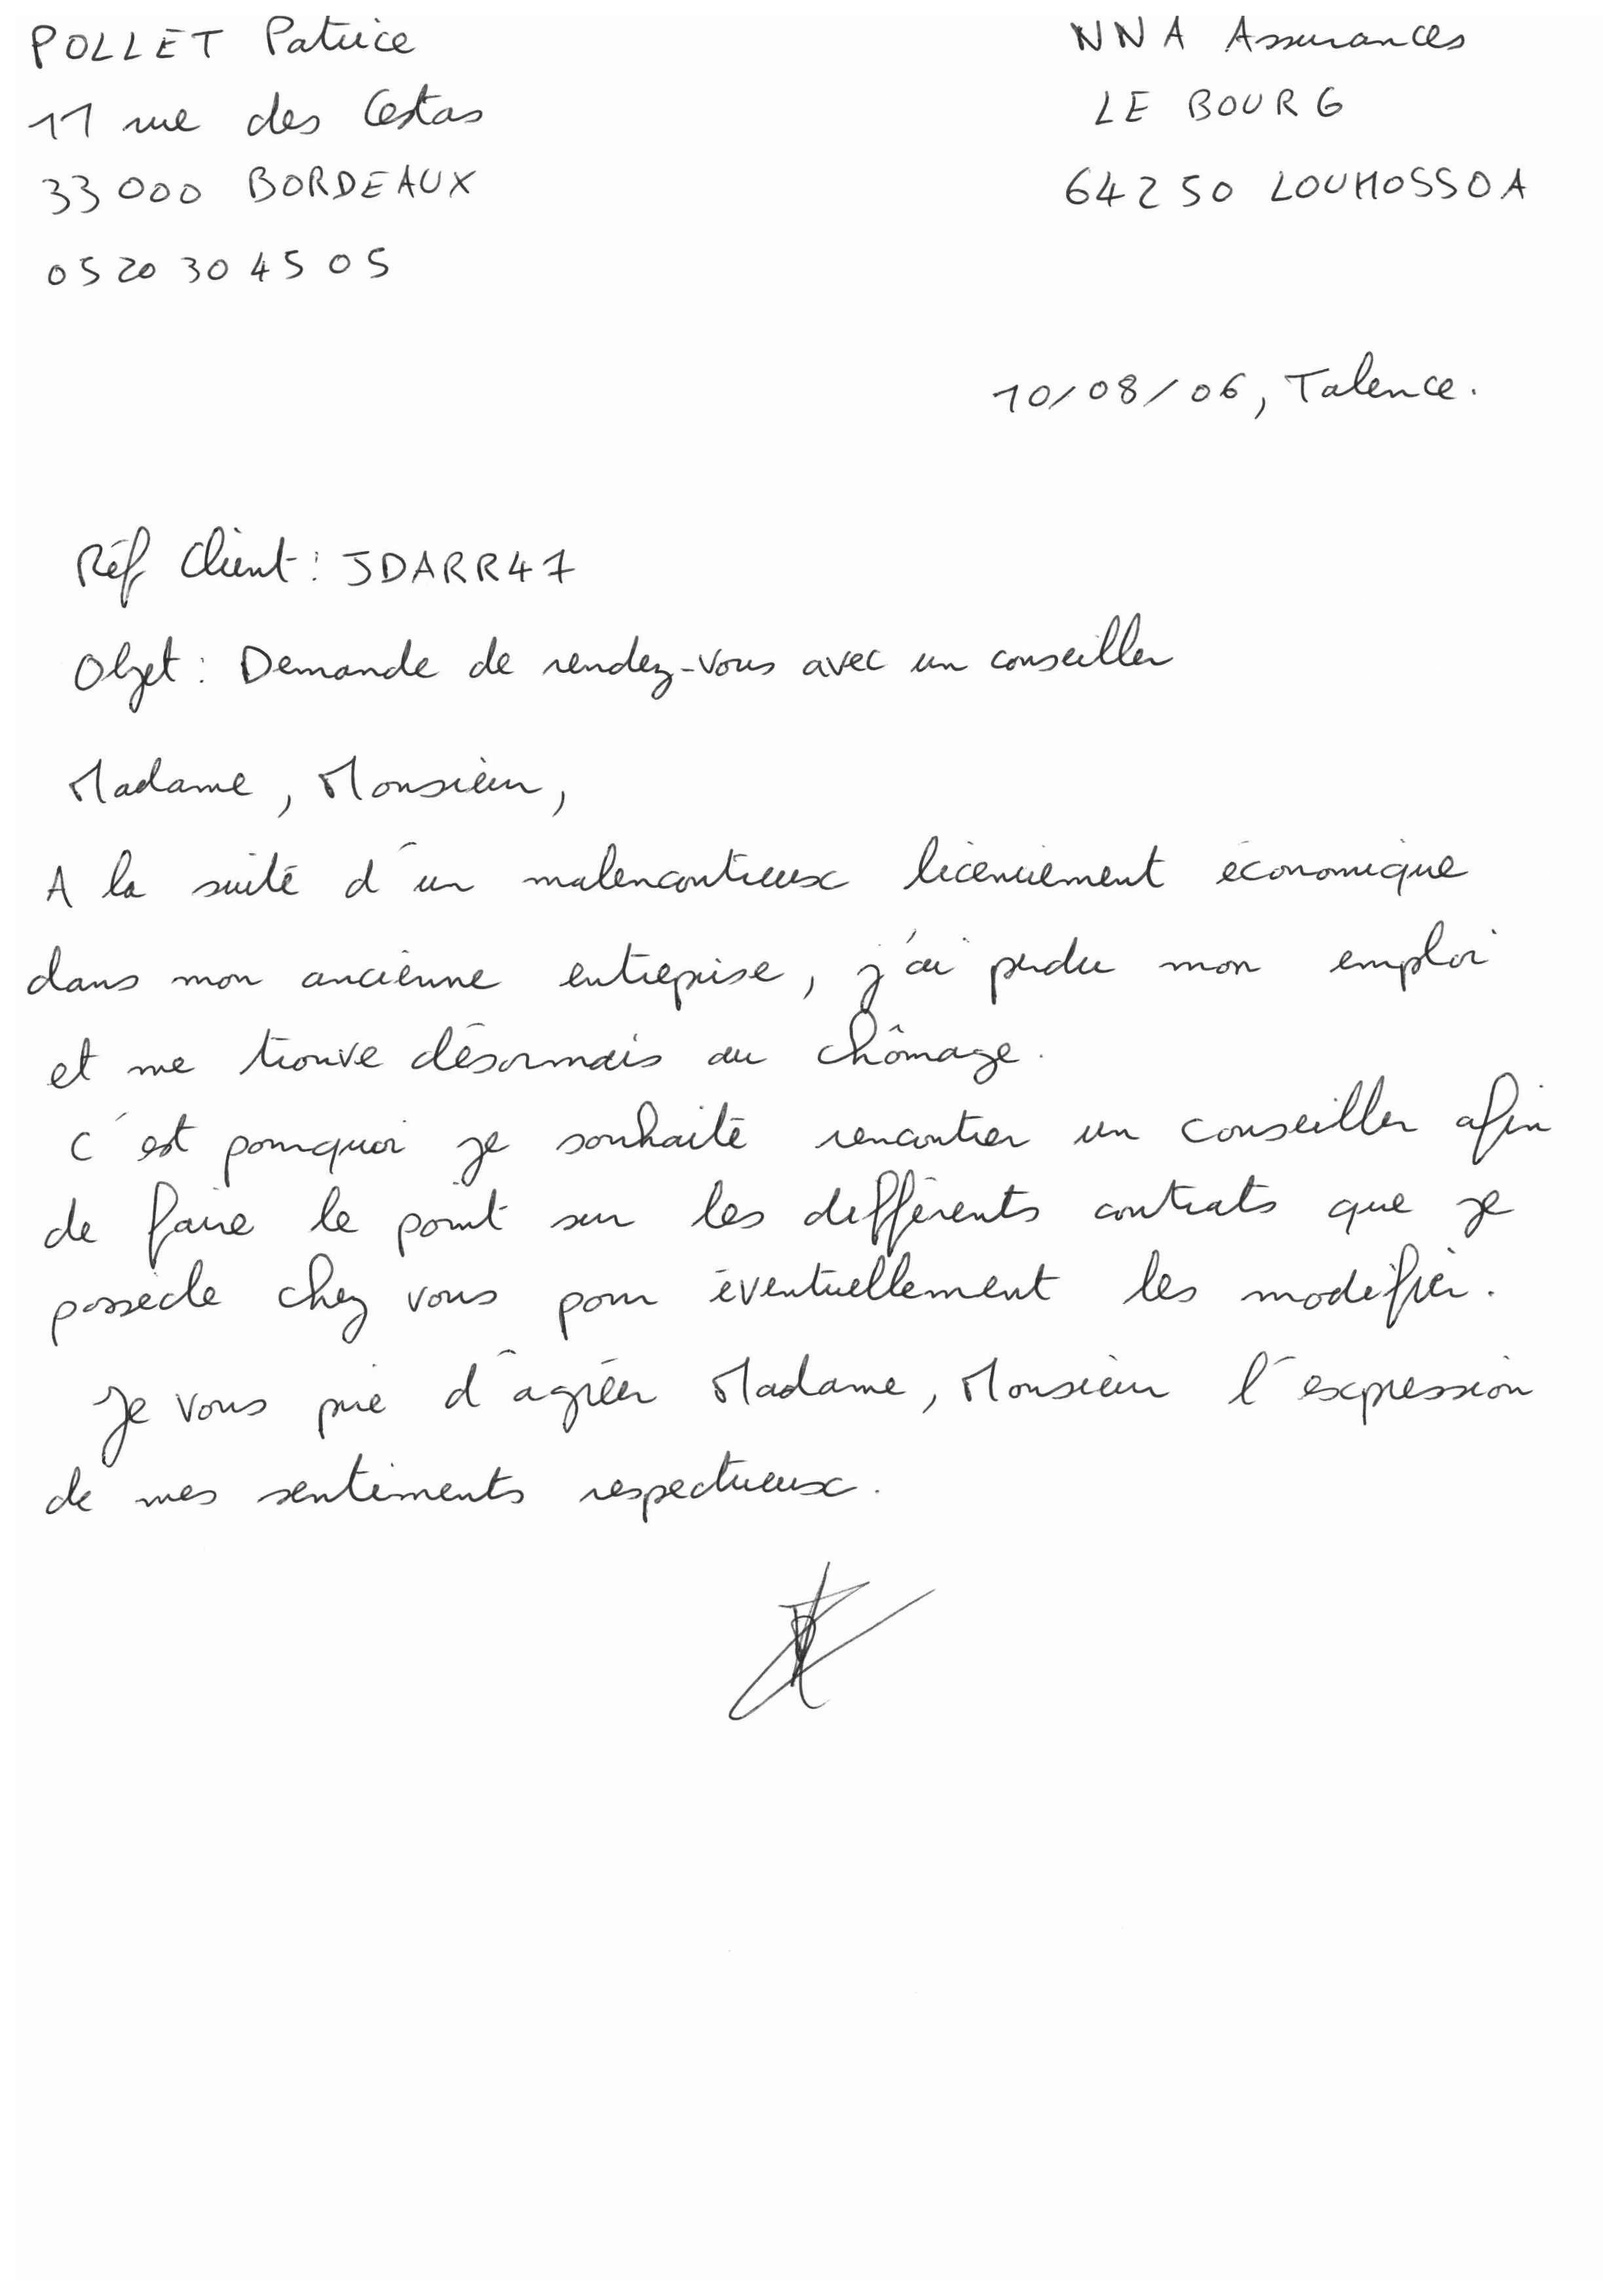 POLLET Patrice
11 rue des Cestas
33000 BORDEAUX
05 20 30 45 05
NNA Assurances
LE BOURG
64250 LOUHOSSOA
10/08/06, Talence.
Réf Client : JDARR47
Objet : Demande de rendez-vous avec un conseiller
Madame, Monsieur,
A la suite d'un malencontreux licenciement économique
dans mon ancienne entreprise, j'ai perdu mon emploi
et me trouve désormais au chômage.
C'est pourquoi je souhaite rencontrer un conseiller afin
de faire le point sur les différents contrats que je
possède chez vous pour éventuellement les modifier.
Je vous prie d'agréer Madame, Monsieur l'expression
de mes sentiments respectueux.